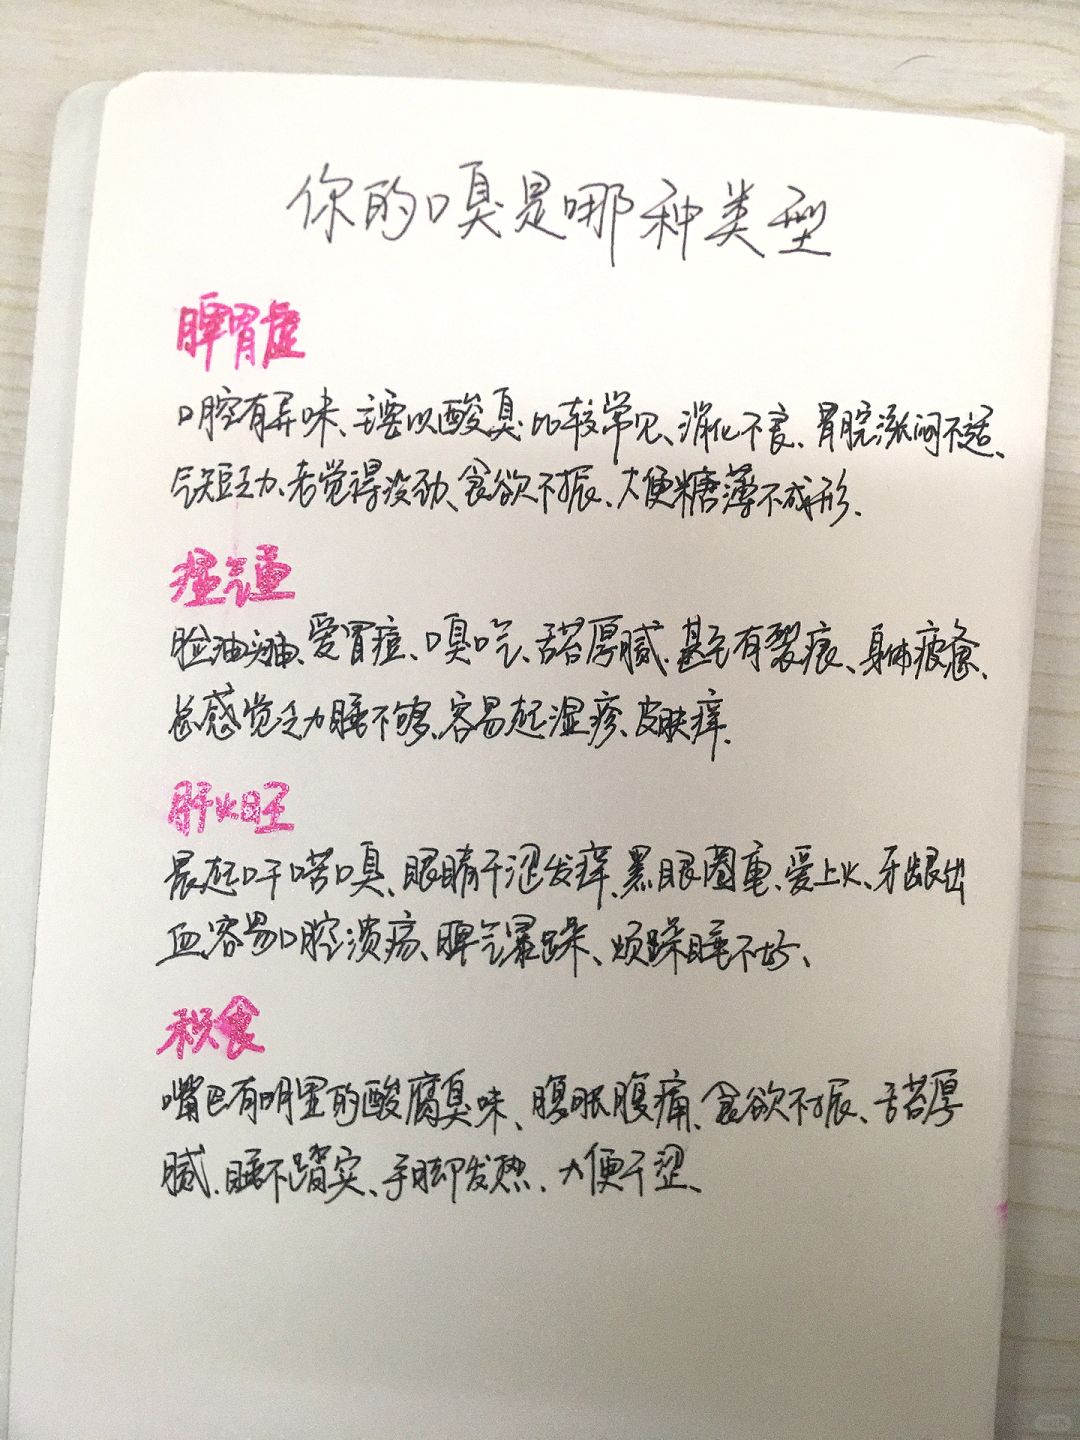 你的口臭是哪种类型
脾胃虚
口腔有异味、主要以酸臭比较常见、消化不良、胃脘涨闷不适、
气短乏力、老觉得没劲、食欲不振、大便糖薄不成形、
湿气重
脸油头油、爱冒痘、口臭口气、舌苔厚腻、甚至有裂痕、身体疲惫、
总感觉乏力睡不够、容易起湿疹、皮肤痒、
肝火旺
晨起口干口苦口臭、眼睛干涩发痒、黑眼圈重、爱上火、牙龈出
血、容易口腔溃疡、脾气暴躁、烦躁睡不好、
积食
嘴巴有明显的酸腐臭味、腹胀腹痛、食欲不振、舌苔厚
腻、睡不踏实、手脚发热、大便干涩、
小红书